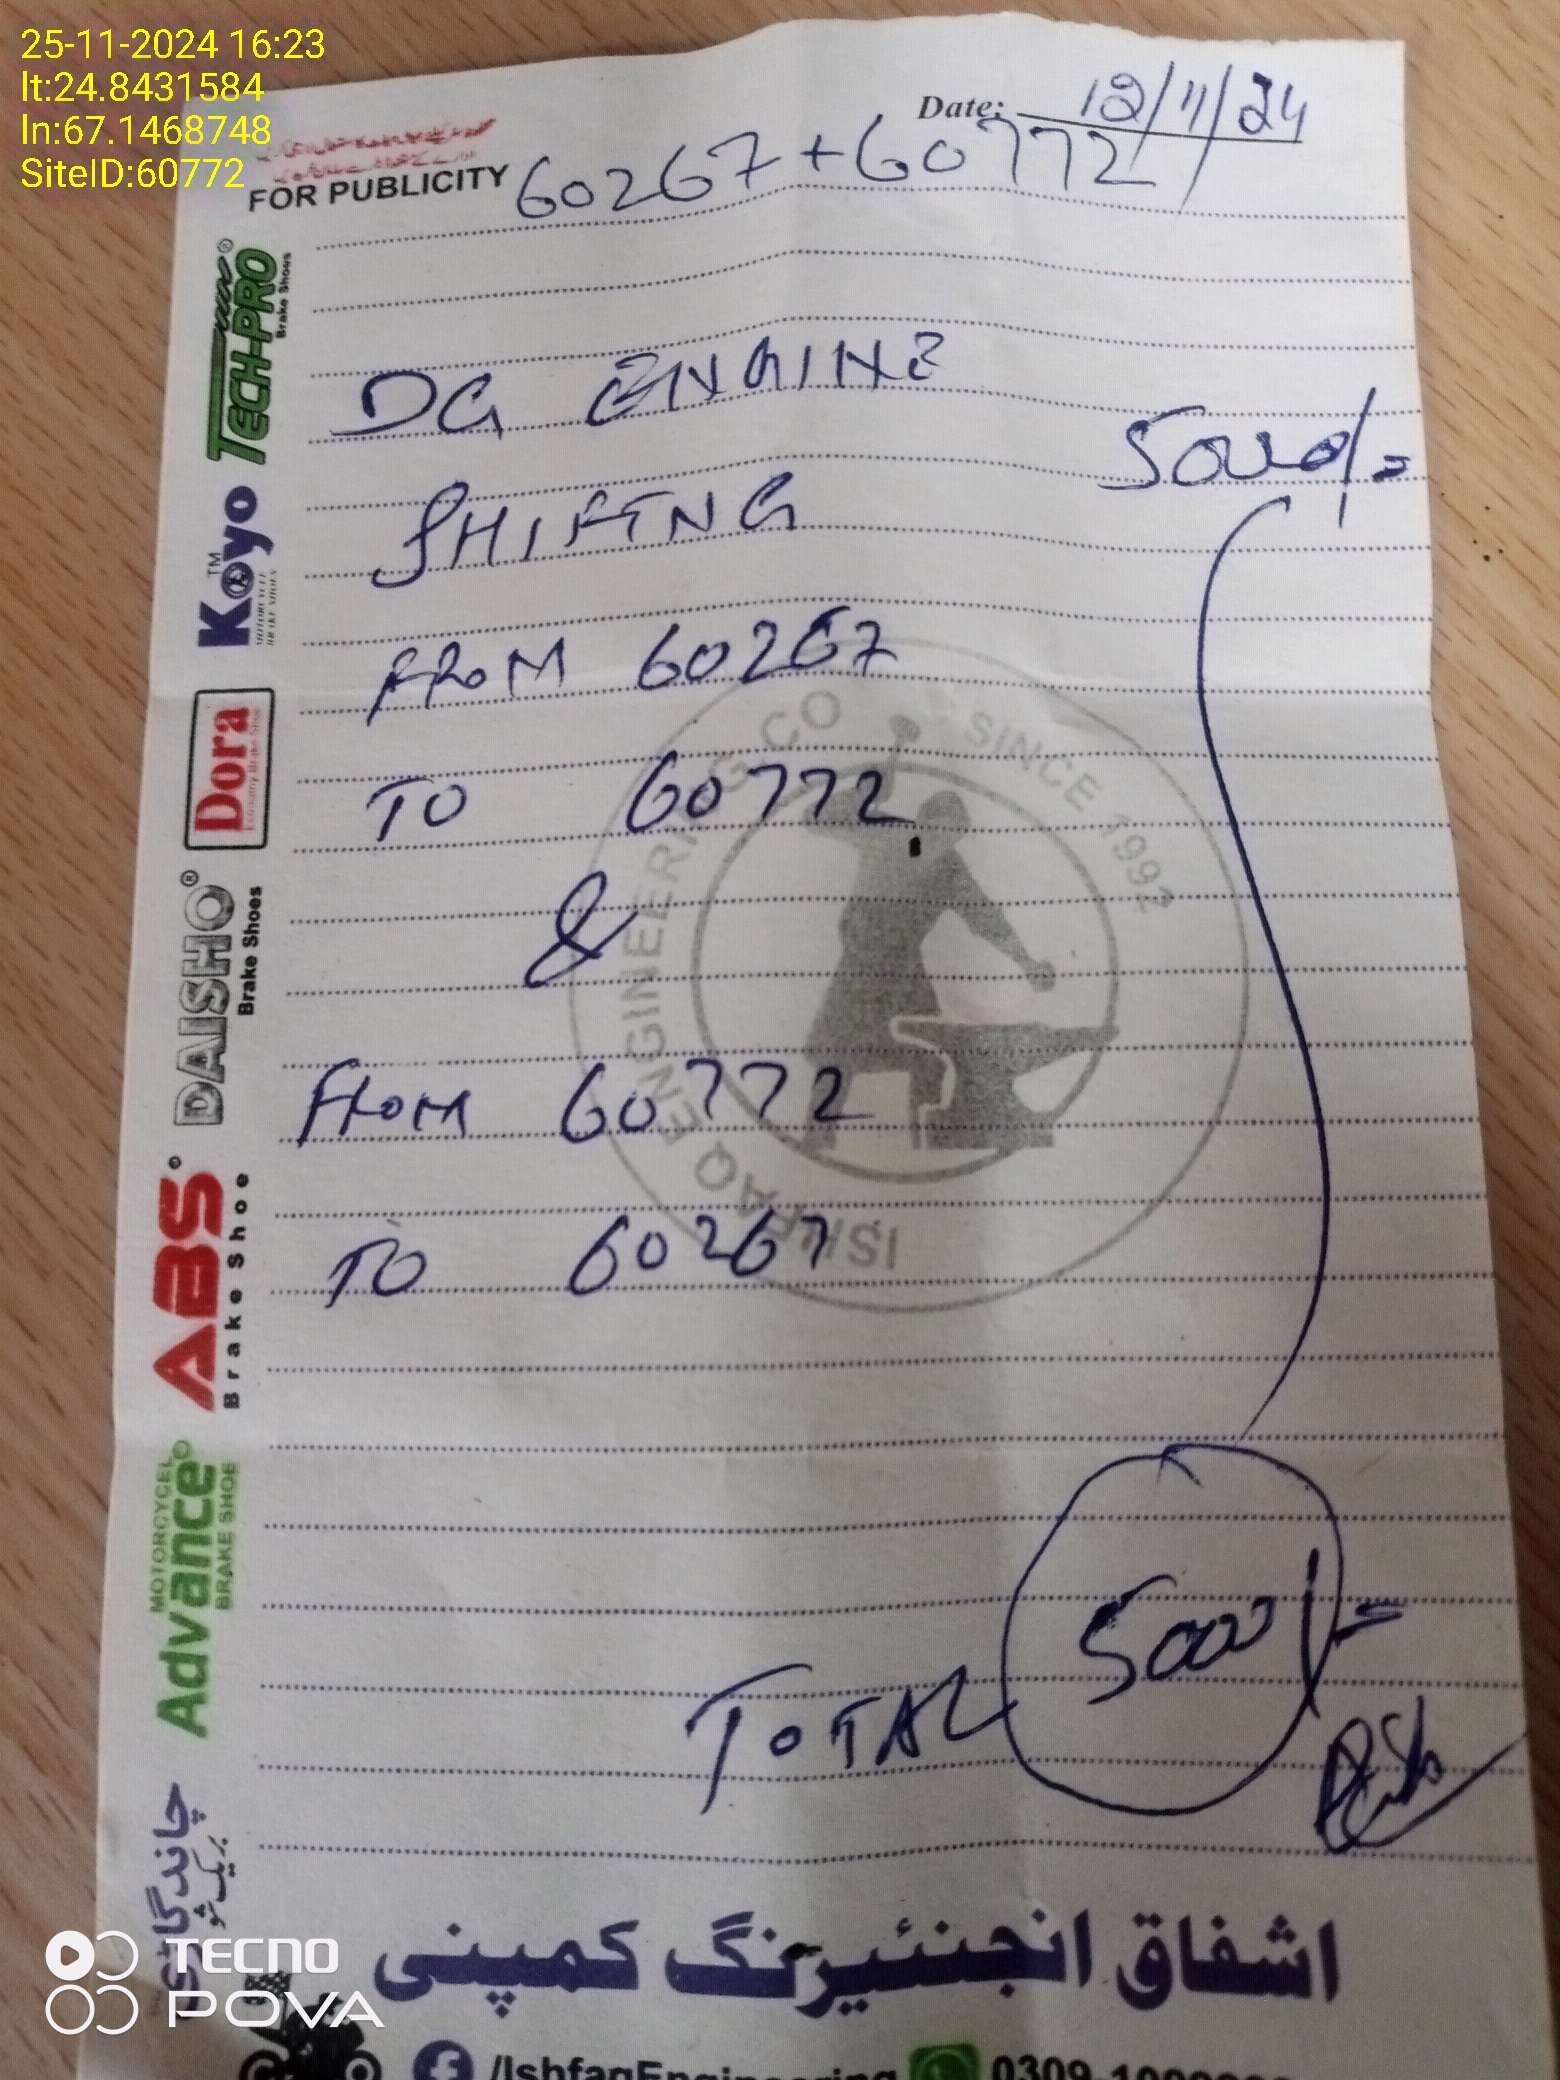 25-11-2024 16:23
lt:24.8431584
ln:67.1468748
SiteID:60772
Date: 12/11/24
FOR PUBLICITY
60267+60772
TECH-PRO®
Brake Shoes
DG ENGINE
5000/=
SHIFTNG
Koyo™
MOTORCYCLE
BRAKE SHOES
FROM 60267
Dora
TO 60772
&
DAISHO®
Brake Shoes
FROM 60772
TO 60267
ISHFAQ ENGINEERING CO SINCE 1992
ABS
Brake Shoe
MOTORCYCEL
Advance
BRAKE SHOE
5000/=
TOTAL
چاند گاڑی
بریک شو
اشفاق انجنئیرنگ کمپنی
TECNO
POVA
/IshfaqEngineering
0309-